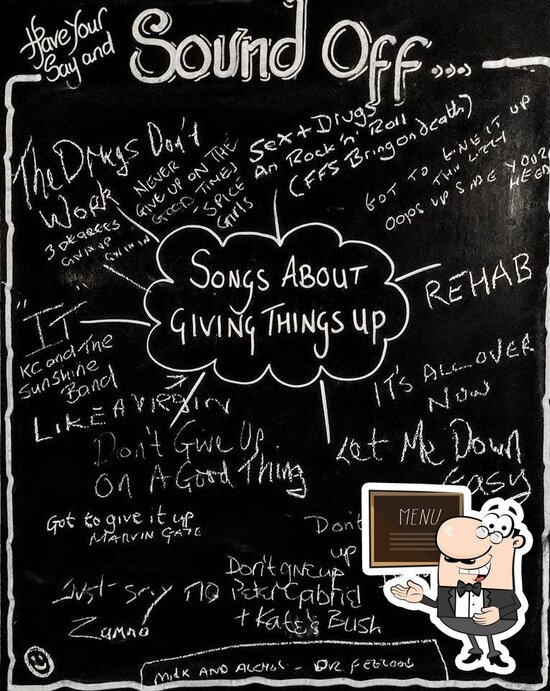 Have Your
Say and
Sound Off....
The Drugs Don't
Work
NEVER
GIVE UP ON THE
GOOD TIMES
SPICE
GIRLS
Sex + Drugs
An Rock 'n' Roll
(FFS Bring on death)
GOT TO GIVE IT UP
THIN LIZZY
OOPS UP SIDE YOUR
HEAD
3 DEGREES
GIVIN UP
GIVIN IN
SONGS ABOUT
GIVING THINGS UP
REHAB
"IT"
KC and The
Sunshine
Band
LIKE A VIRGIN
IT'S ALL OVER
NOW
Don't Give Up
On A Good Thing
Let Me Down
Easy
Got to give it up
MARVIN GAYE
Don't
up
MENU
Don't give up
Peter Gabriel
+ Kate Bush
Just say no
Zammo
MILK AND ALCOHOL - DR FEELGOOD